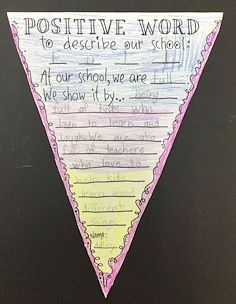 POSITIVE WORD
to describe our school:
F u l l
At our school, we are full
We show it by... being
full of kids who
love to learn and
laugh. We are also
full of teachers
who love to
help kids
learn about
different
things.
Name: